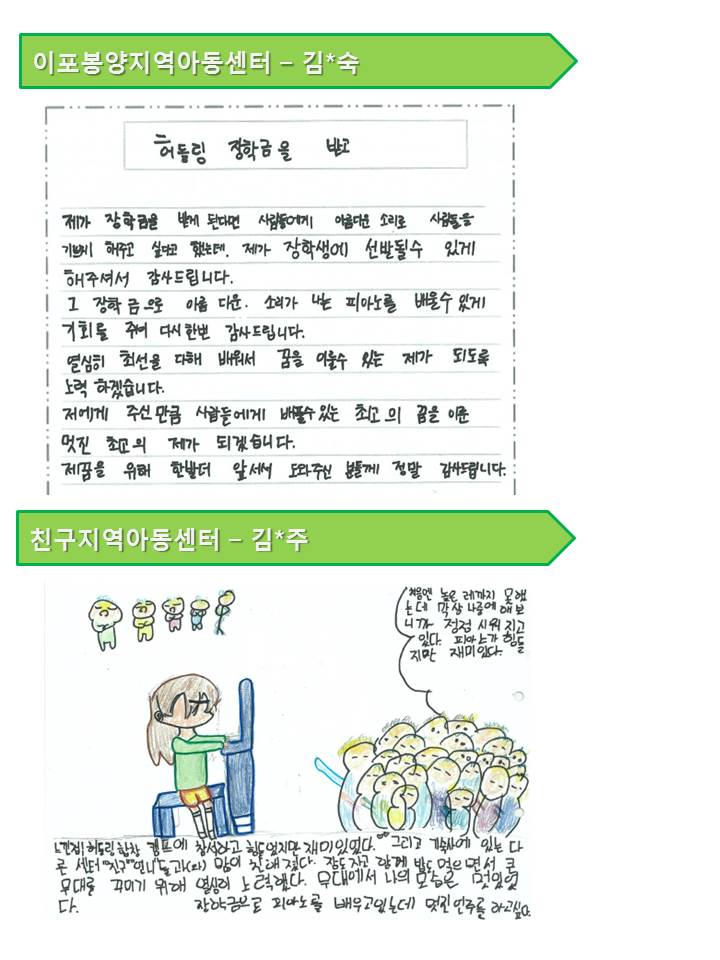 이포봉양지역아동센터 – 김*숙
허들링 장학금을 받고
제가 장학금을 받게 된다면 사람들에게 아름다운 소리로 사람들을
기쁘게 해주고 싶다고 했는데. 제가 장학생에 선발될수 있게
해주셔서 감사드립니다.
그 장학금으로 아름 다운. 소리가 나는 피아노를 배울수있게
기회를 주어 다시한번 감사드립니다.
열심히 최선을 다해 배워서 꿈을 이룰수 있는 제가 되도록
노력 하겠습니다.
저에게 주신만큼 사람들에게 배풀수있는 최고의 꿈을 이룬
멋진 최고의 제가 되겠습니다.
제꿈을 위해 한발더 앞서서 도와주신 분들께 정말 감사드립니다.
친구지역아동센터 – 김*주
처음엔 높은 레까지 못했
는데 막상 나중에 해보
니까 점점 쉬워 지고
있다. 피아노가 힘들
지만 재미있다.
느낀점! 허들링합창 캠프에 참석하고 힘들었지만 재미있었다. 그리고 기숙사에 있는 다
른 센터 "친구" "언니"들과(와) 많이 친해졌다. 잠도자고 함께 밥도 먹으면서 큰
무대를 꾸미기 위해 열심히 노력했다. 무대에서 나의 모습은 멋있었
다. 장학금으로 피아노를 배우고있는데 멋진 연주를 하고싶다.